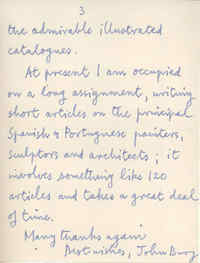 3
the admirable illustrated
catalogues.
At present I am occupied
on a long assignment, writing
short articles on the principal
Spanish & Portuguese painters,
sculptors and architects ; it
involves something like 120
articles and takes a great deal
of time.
Many thanks again
Best wishes, John